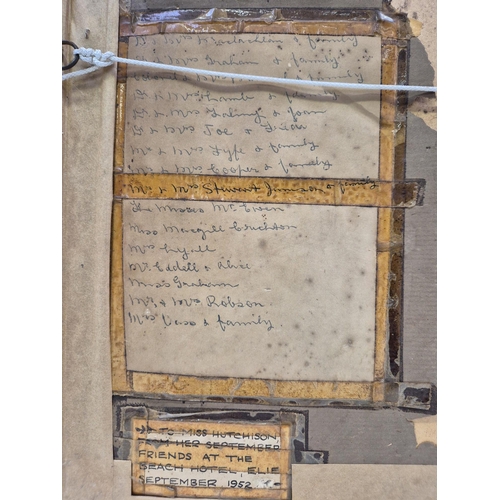 Dr & Mrs Maclachlan & family
& Mrs Graham & family
& Mrs & family
Dr & Mrs Lamb & family
Dr & Mrs &
Dr & Mrs Joe &
Mr & Mrs Fyfe & family
Mr & Mrs Cooper & family
Mr & Mrs Stewart Jamieson & family
The Misses McEwen
Miss Macgill Crichton
Mrs Lyall
Mr Eddell & Alice
Miss Graham
Mr & Mrs Robson
Mrs Vass & family
TO MISS HUTCHISON
FROM HER SEPTEMBER
FRIENDS AT THE
BEACH HOTEL ELIE
SEPTEMBER 1952